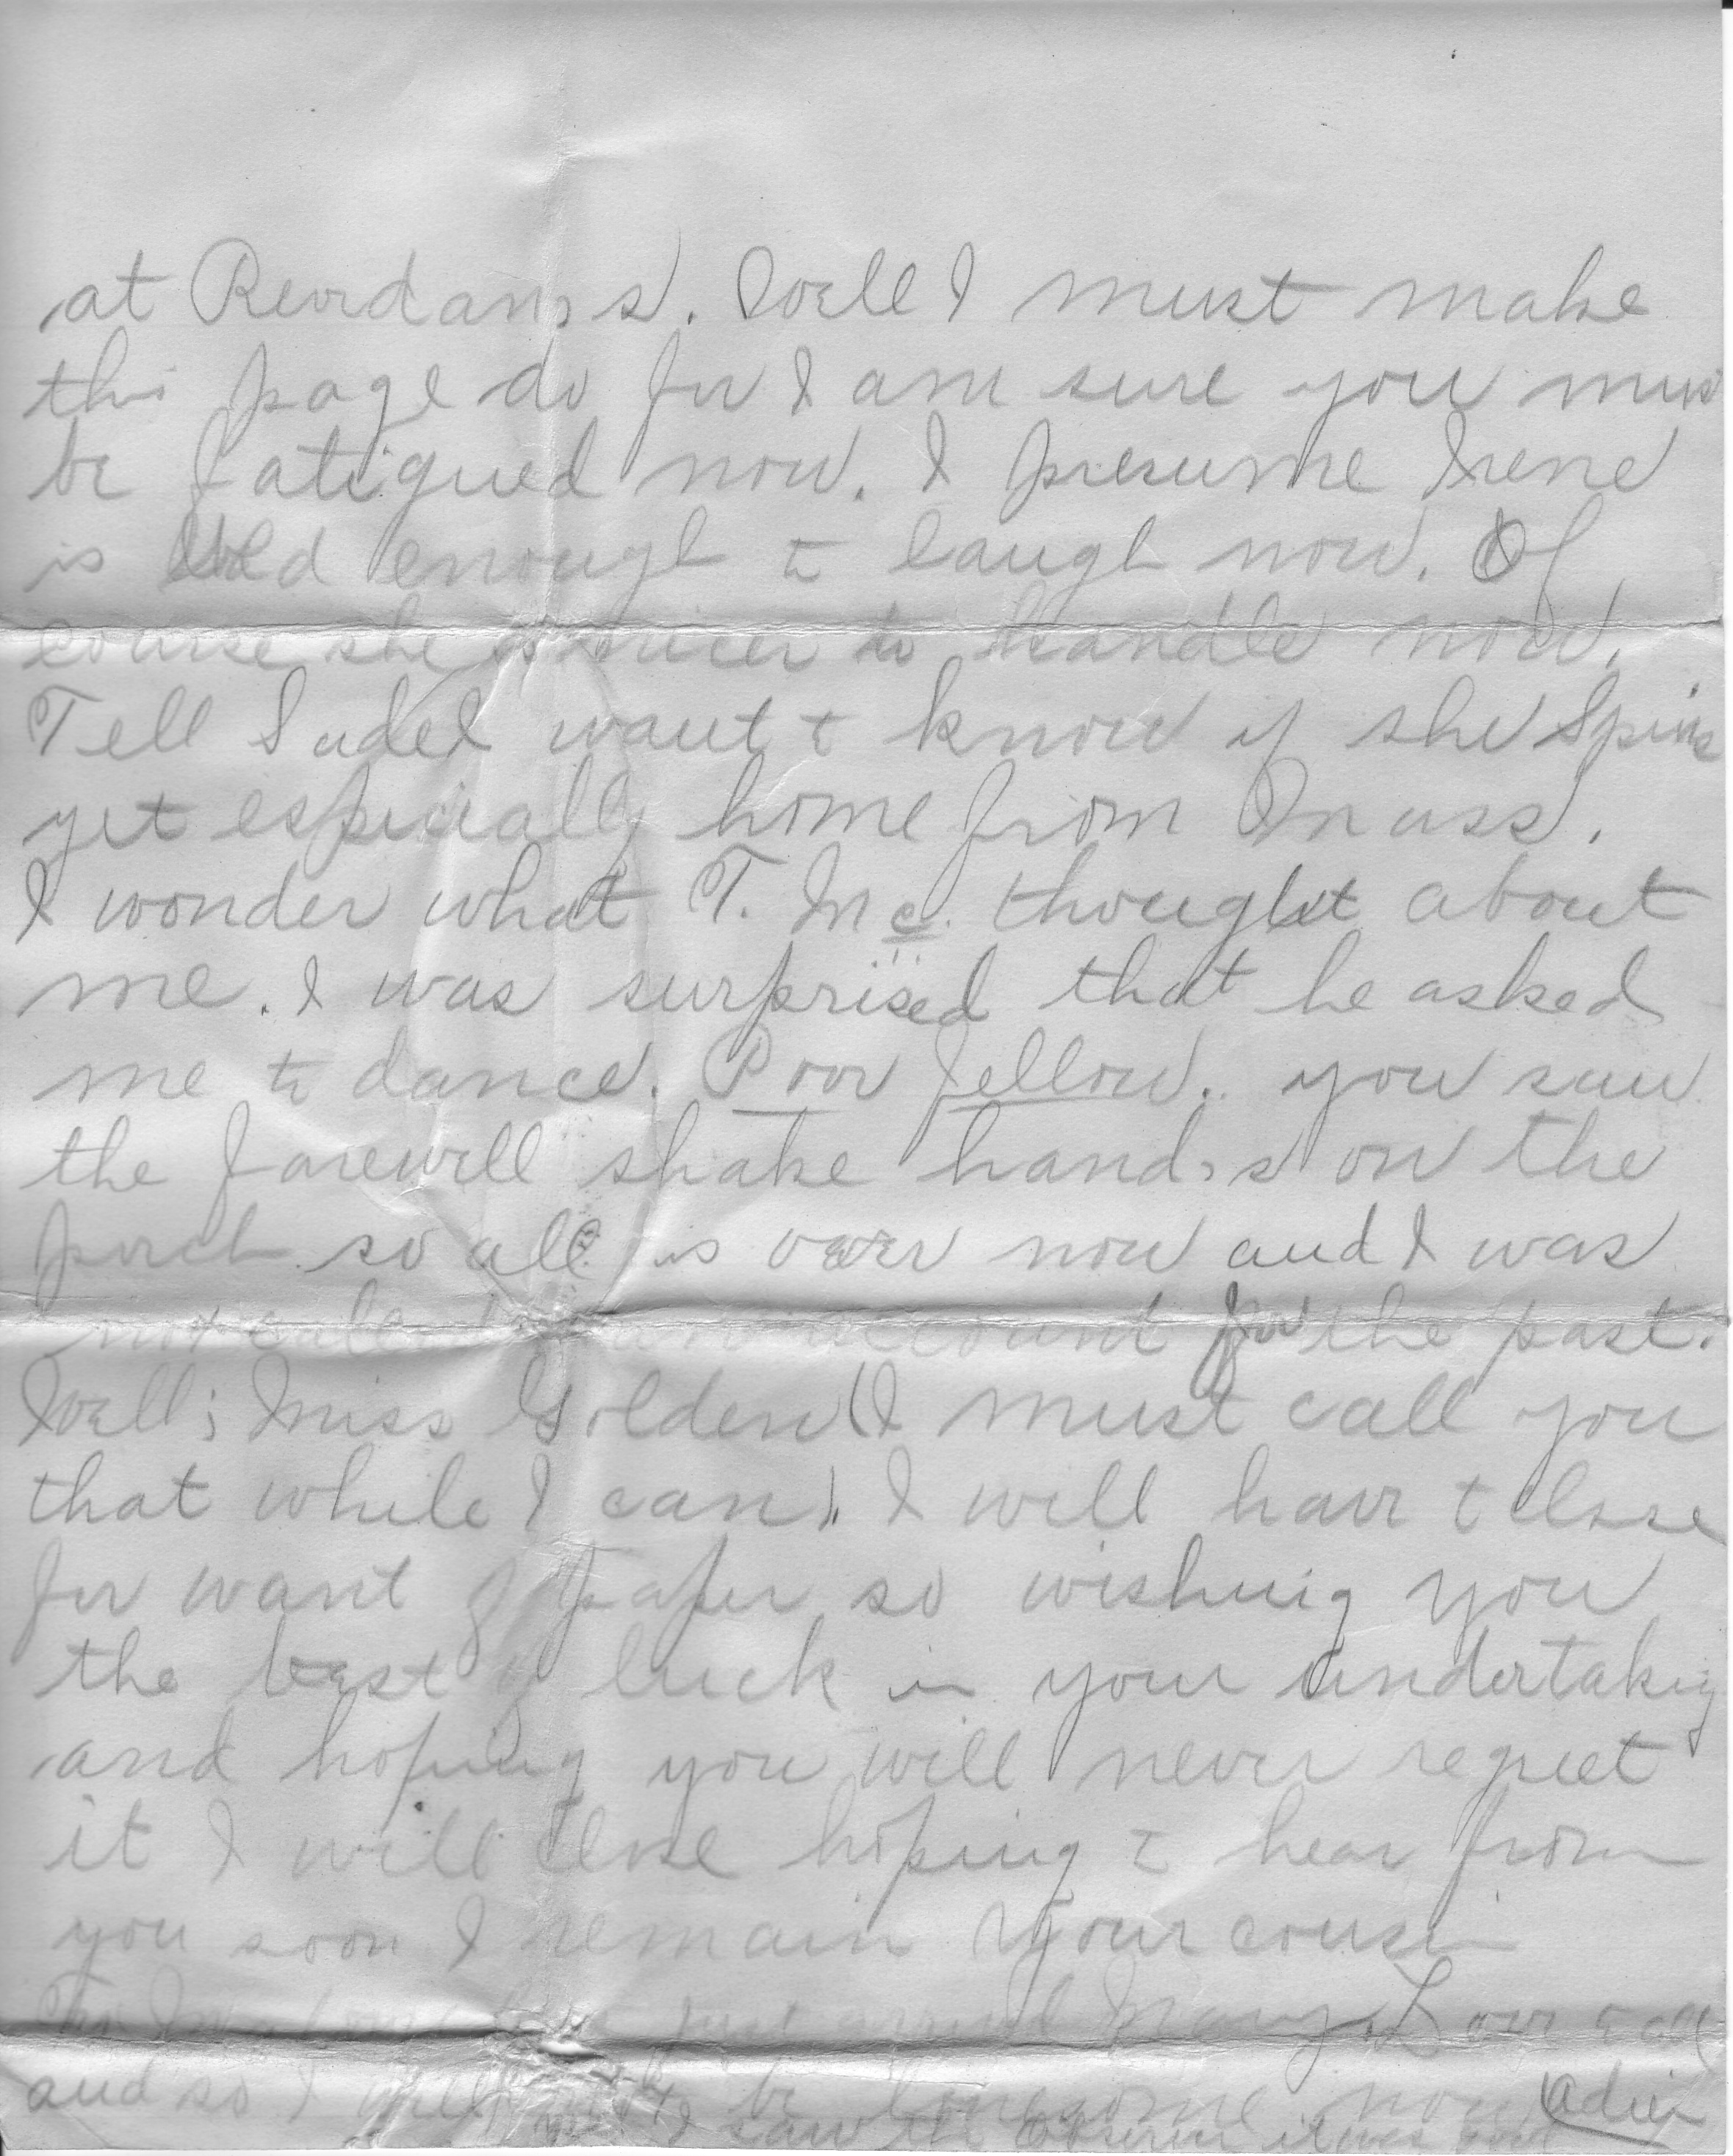 at Reordan's. Well I must make
this page do for I am sure you must
be fatigued now. I presume Irene
is old enough to laugh now. Of
course she is nicer to handle now.
Tell Sade I want to know if she Spins
yet especially home from Mass.
I wonder what T. Mc. thought about
me. I was surprised that he asked
me to dance. Poor fellow. you saw
the farewell shake hand's on the
porch so all is over now and I was
not called to an account for the past.
Well; Miss Golden (I must call you
that while I can). I will have to close
for want of paper so wishing you
the best of luck in your undertaking
and hoping you will never regret
it I will close hoping to hear from
you soon I remain Your cousin
just arrived Mary. Love to all
and so I will not be lonesome now Adieu
I saw the it was